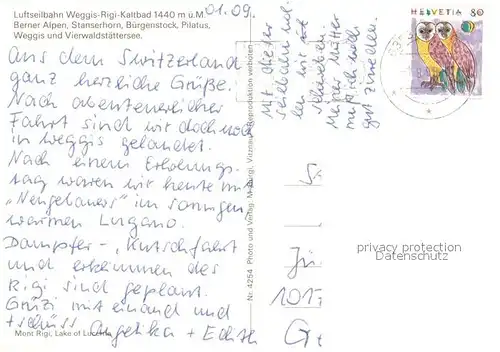 Luftseilbahn Weggis-Rigi-Kaltbad 1440 m ü.M.
Berner Alpen, Stanserhorn, Bürgenstock, Pilatus,
Weggis und Vierwaldstättersee.
01.09.
Aus dem Switzerland
ganz herzliche Grüße.
Nach abenteuerlicher
Fahrt sind wir doch noch
in Weggis gelandet.
Nach einem Erholungs-
tag waren wir heute mit
"Neugebauers" im sonnigen
warmen Lugano.
Dampfer-, Kutschfahrt
und erklimmen des
Rigi sind geplant.
Grüzi miteinand und
tschüss Angelika + Edith
Mit dieser
Seilbahn wol-
len wir
schweben.
Meiner Mutter
geht
gut zufrieden.
Mont Rigi, Lake of Lucerne
Nr. 4254 Photo und Verlag M. Zgraggen, Vitznau, Reproduktion verboten
HELVETIA 80
privacy protection
Datenschutz
101
G